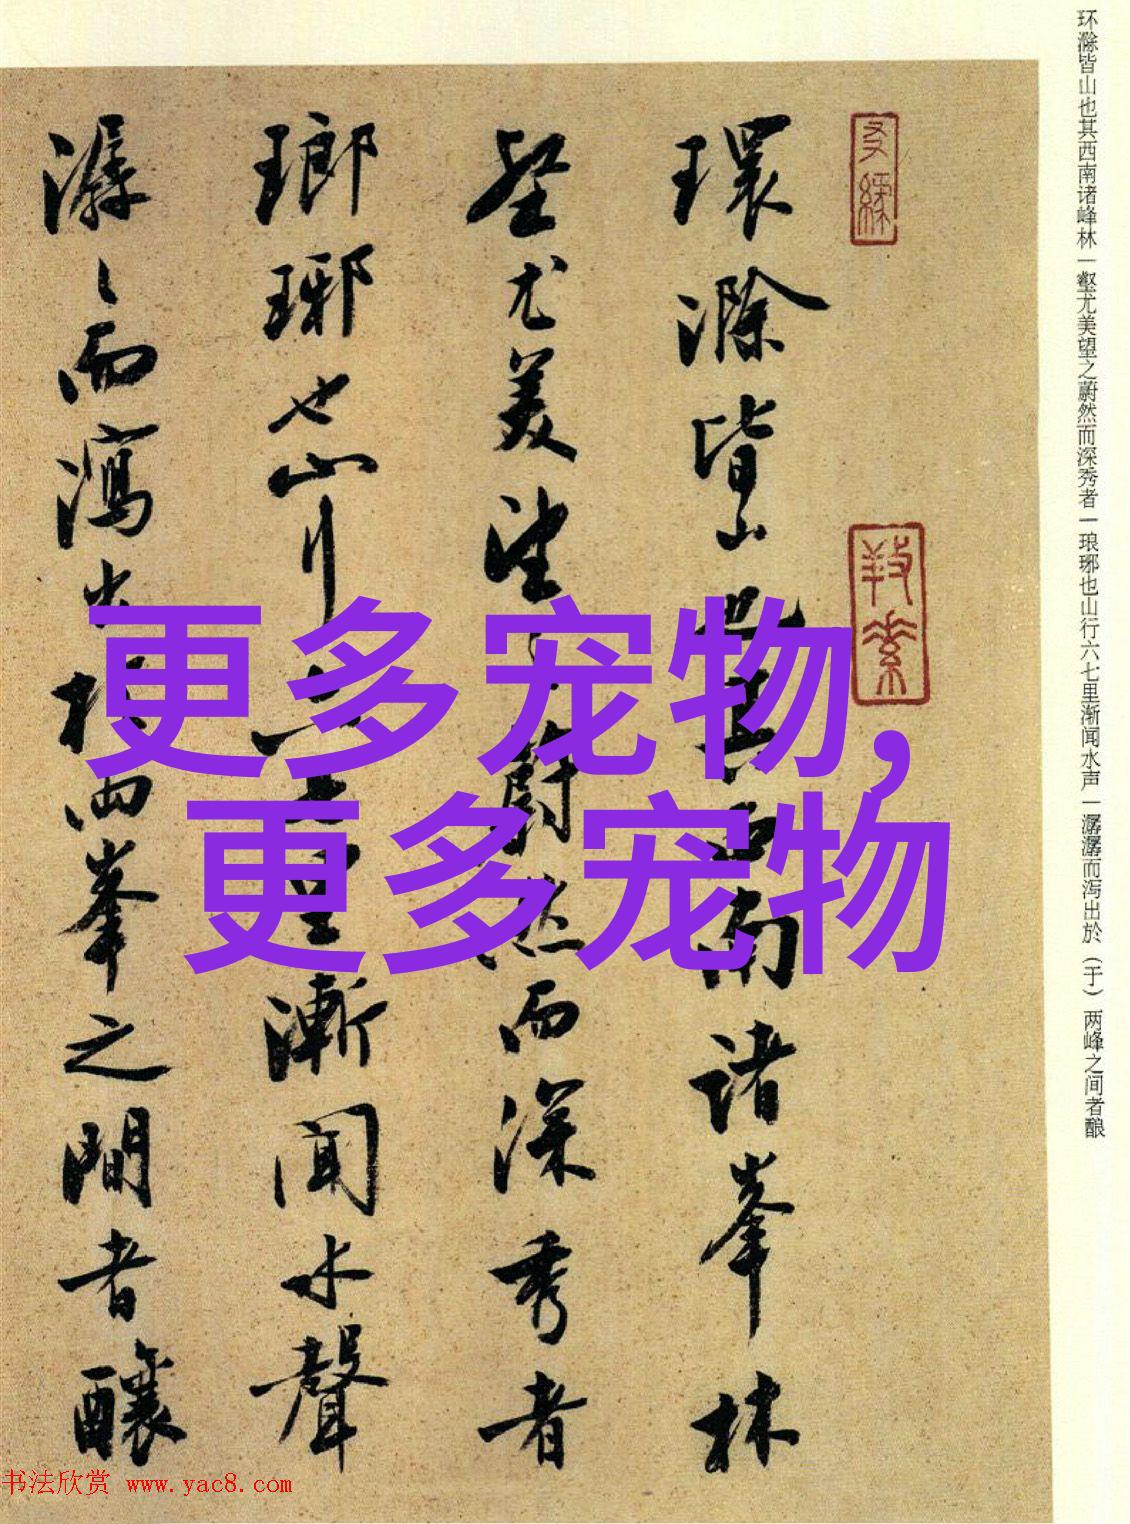 环滁皆山也其西南诸峰林一壑尤美望之蔚然而深秀者一琅琊也山行六七里渐闻水声一潺潺而泻出於（于）两峰之间者酿
環滁皆山也其西南诸峯林
壑尤美望之蔚然而深秀者
瑯琊也山行六七里漸闻水聲
潺〻而瀉出於两峯之間者釀
更多宠物，
更多宠物
书法欣赏 www.yac8.com